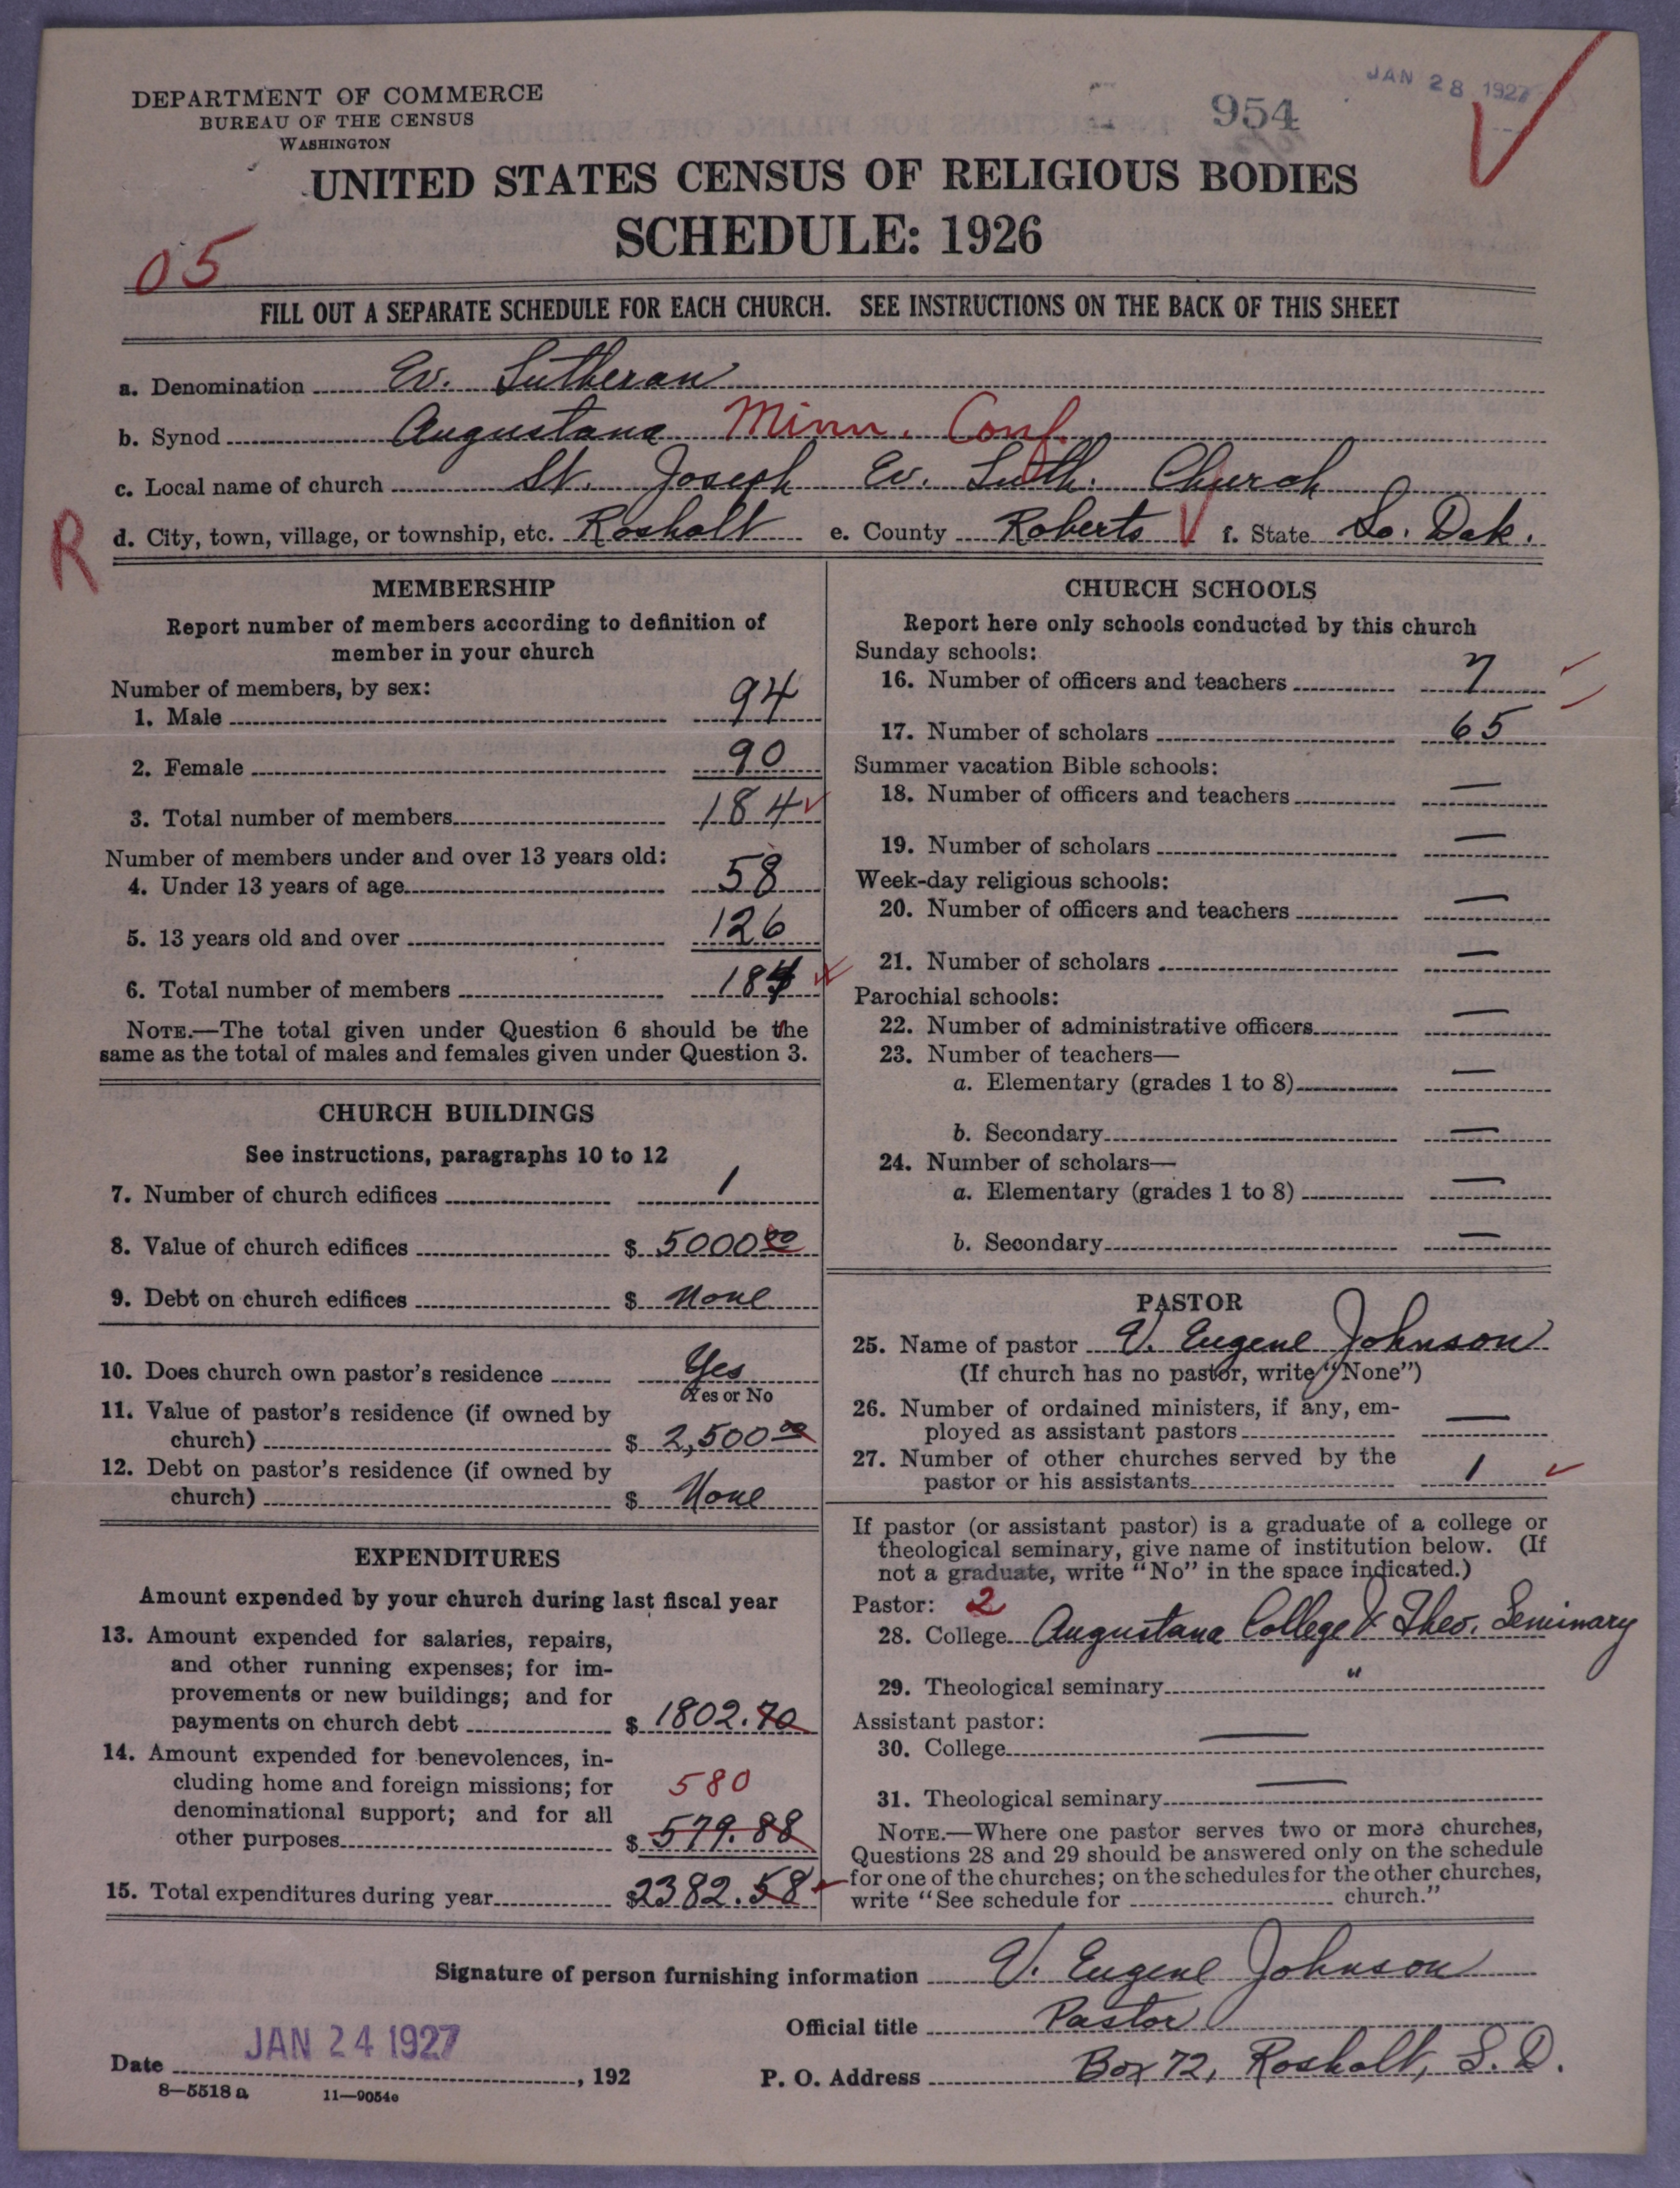 DEPARTMENT OF COMMERCE
BUREAU OF THE CENSUS
WASHINGTON
954
JAN 28 1927
UNITED STATES CENSUS OF RELIGIOUS BODIES
SCHEDULE: 1926
05
FILL OUT A SEPARATE SCHEDULE FOR EACH CHURCH. SEE INSTRUCTIONS ON THE BACK OF THIS SHEET
a. Denomination Ev. Lutheran
b. Synod Augustana Minn. Conf.
c. Local name of church St. Joseph Ev. Luth. Church
R
d. City, town, village, or township, etc. Rosholt e. County Roberts f. State So. Dak.
MEMBERSHIP
Report number of members according to definition of
member in your church
Number of members, by sex:
1. Male 94
2. Female 90
3. Total number of members 184
Number of members under and over 13 years old:
4. Under 13 years of age 58
5. 13 years old and over 126
6. Total number of members 184
NOTE.—The total given under Question 6 should be the
same as the total of males and females given under Question 3.
CHURCH BUILDINGS
See instructions, paragraphs 10 to 12
7. Number of church edifices 1
8. Value of church edifices $ 5000 00
9. Debt on church edifices $ None
10. Does church own pastor's residence Yes
Yes or No
11. Value of pastor's residence (if owned by
church) $ 2,500 00
12. Debt on pastor's residence (if owned by
church) $ None
EXPENDITURES
Amount expended by your church during last fiscal year
13. Amount expended for salaries, repairs,
and other running expenses; for im-
provements or new buildings; and for
payments on church debt $ 1802.70
14. Amount expended for benevolences, in-
cluding home and foreign missions; for 580
denominational support; and for all
other purposes $ 579.88
15. Total expenditures during year $2382.58
CHURCH SCHOOLS
Report here only schools conducted by this church
Sunday schools:
16. Number of officers and teachers 7
17. Number of scholars 65
Summer vacation Bible schools:
18. Number of officers and teachers —
19. Number of scholars —
Week-day religious schools:
20. Number of officers and teachers —
21. Number of scholars —
Parochial schools:
22. Number of administrative officers —
23. Number of teachers—
a. Elementary (grades 1 to 8) —
b. Secondary —
24. Number of scholars—
a. Elementary (grades 1 to 8) —
b. Secondary —
PASTOR
25. Name of pastor V. Eugene Johnson
(If church has no pastor, write "None")
26. Number of ordained ministers, if any, em-
ployed as assistant pastors —
27. Number of other churches served by the
pastor or his assistants 1
If pastor (or assistant pastor) is a graduate of a college or
theological seminary, give name of institution below. (If
not a graduate, write "No" in the space indicated.)
Pastor: 2
28. College Augustana College & Theo. Seminary
29. Theological seminary "
Assistant pastor:
30. College —
31. Theological seminary —
NOTE.—Where one pastor serves two or more churches,
Questions 28 and 29 should be answered only on the schedule
for one of the churches; on the schedules for the other churches,
write "See schedule for church."
Signature of person furnishing information V. Eugene Johnson
Official title Pastor
Date JAN 24 1927, 192 P. O. Address Box 72, Rosholt, S. D.
8—5518 a 11—9054c